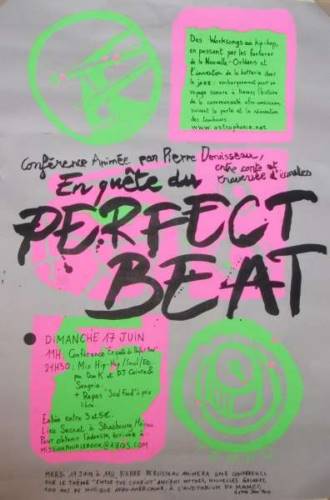 Des Worksongs au hip-hop,
en passant par les fanfares
de la Nouvelle-Orléans et
l'invention de la batterie dans
le jazz : embarquement pour un
voyage sonore à travers l'histoire
de la communauté afro-américaine,
suivant la perte et la réinvention
des tambours.
www.astrophonie.net
Conférence Animée par Pierre Deruisseau,
entre conte et
traversée d'écoutes
En quête du
PERFECT
BEAT
DIMANCHE 17 JUIN
19H: Conférence "En quête du Perfect Beat"
21H30: Mix Hip-Hop/Soul/
par et DJ
+ Repas "Soul Food" à prix
libre
Entrée entre 3 et 5€.
Lieu Secret à Strasbourg
Pour obtenir l'adresse, écrire à:
MERC. JUIN À PIERRE DERUISSEAU ANIMERA UNE CONFÉRENCE
SUR LE THÈME "ENTER THE CHARIOT" ANCIENS MYTHES, NOUVELLES
ANS DE MUSIQUE AFRO-AMÉRICAINE, À L'AUDITORIUM DU MAMCS.